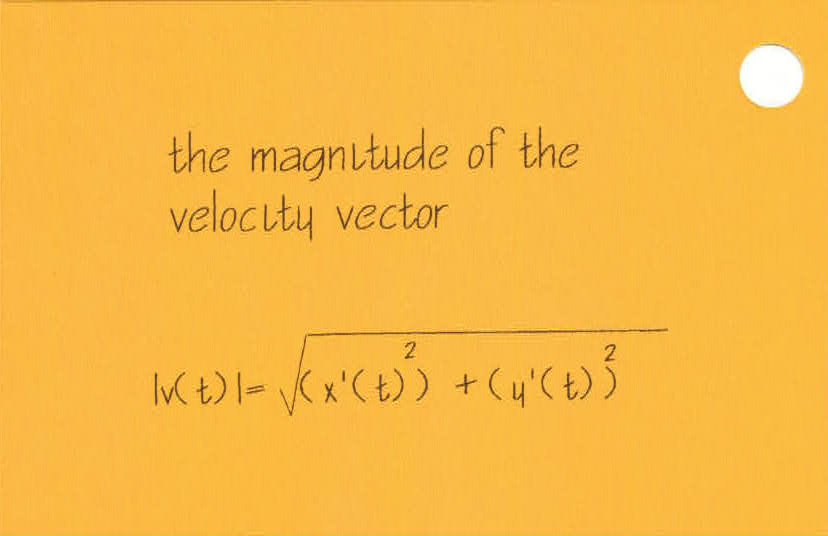 the magnitude of the
velocity vector
|v(t)|= √(x'(t))² +(y'(t))²